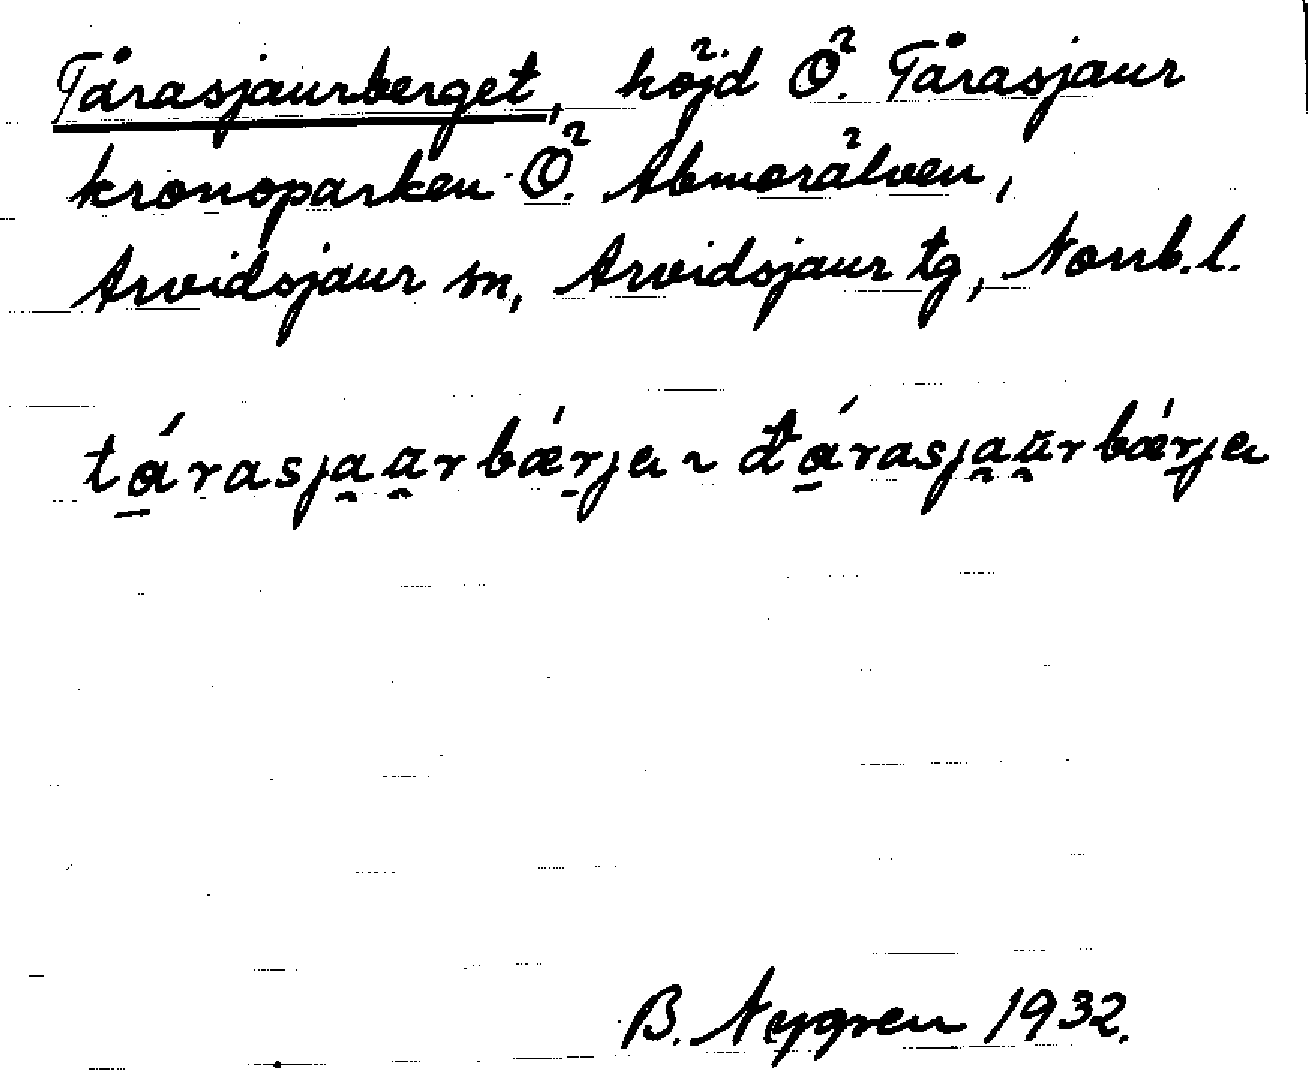 Tårasjaurberget, höjd Ö. Tårasjaur
kronoparken Ö. Abmorälven,
Arvidsjaur sn, Arvidsjaur tg, Norrb.l.
tá̱rasja̯u̯rbǽrja ~ đá̱rasja̯u̯rbǽrja
B. Nygren 1932.